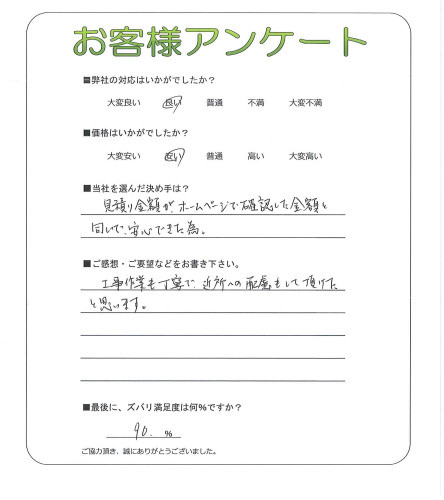 お客様アンケート
■弊社の対応はいかがでしたか？
大変良い 良い 普通 不満 大変不満
■価格はいかがでしたか？
大変安い 安い 普通 高い 大変高い
■当社を選んだ決め手は？
見積り金額が、ホームページで確認した金額と
同じで、安心できた為。
■ご感想・ご要望などをお書き下さい。
工事作業も丁寧で、近所への配慮もして頂けた
と思います。
■最後に、ズバリ満足度は何％ですか？
90. ％
ご協力頂き、誠にありがとうございました。